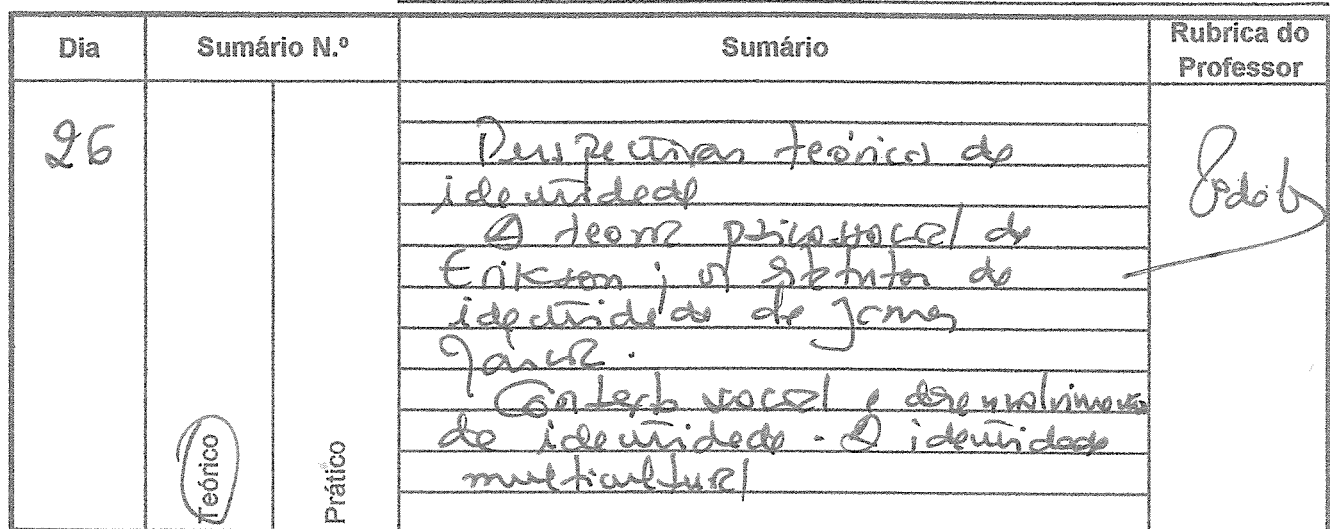 Dia
Sumário N.º
Sumário
Rubrica do
Professor
26
Perspectivas teóricas da
identidade
A teoria psicossocial de
Erikson; os estatutos de
identidade de James
Márcia.
Contexto social e desenvolvimento
da identidade. A identidade
multicultural
Teórico
Prático